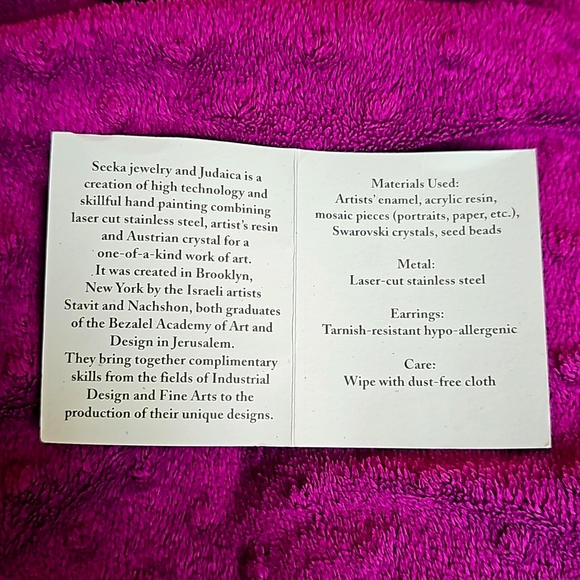 Seeka jewelry and Judaica is a
creation of high technology and
skillful hand painting combining
laser cut stainless steel, artist's resin
and Austrian crystal for a
one-of-a-kind work of art.
It was created in Brooklyn,
New York by the Israeli artists
Stavit and Nachshon, both graduates
of the Bezalel Academy of Art and
Design in Jerusalem.
They bring together complimentary
skills from the fields of Industrial
Design and Fine Arts to the
production of their unique designs.
Materials Used:
Artists' enamel, acrylic resin,
mosaic pieces (portraits, paper, etc.),
Swarovski crystals, seed beads
Metal:
Laser-cut stainless steel
Earrings:
Tarnish-resistant hypo-allergenic
Care:
Wipe with dust-free cloth